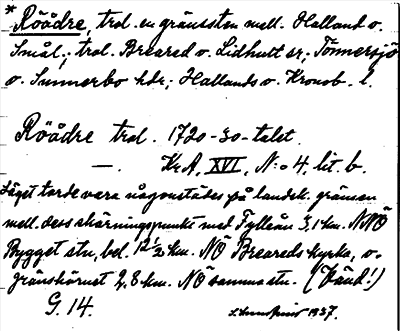 * Röådre, trol. en gränssten mell. Halland o.
Smål., trol. Breared o. Lidhult sr; Tönnersjö
o. Sunnerbo hdr; Hallands o. Kronob. l.
Röådre trol. 1720-30-talet.
— Kr.A. XVI, N:o 4, lit. b.
Läget torde vara någonstädes på landsk. gränsen
mell. dess skärningspunkt med Fylleån 3,1 km. NNÖ
Bygget stn, bel. 12 1/2 km. NÖ Breareds kyrka, o.
gränshörnet 2,8 km. NÖ samma stn. (Vänd!)
G. 14. 1937.